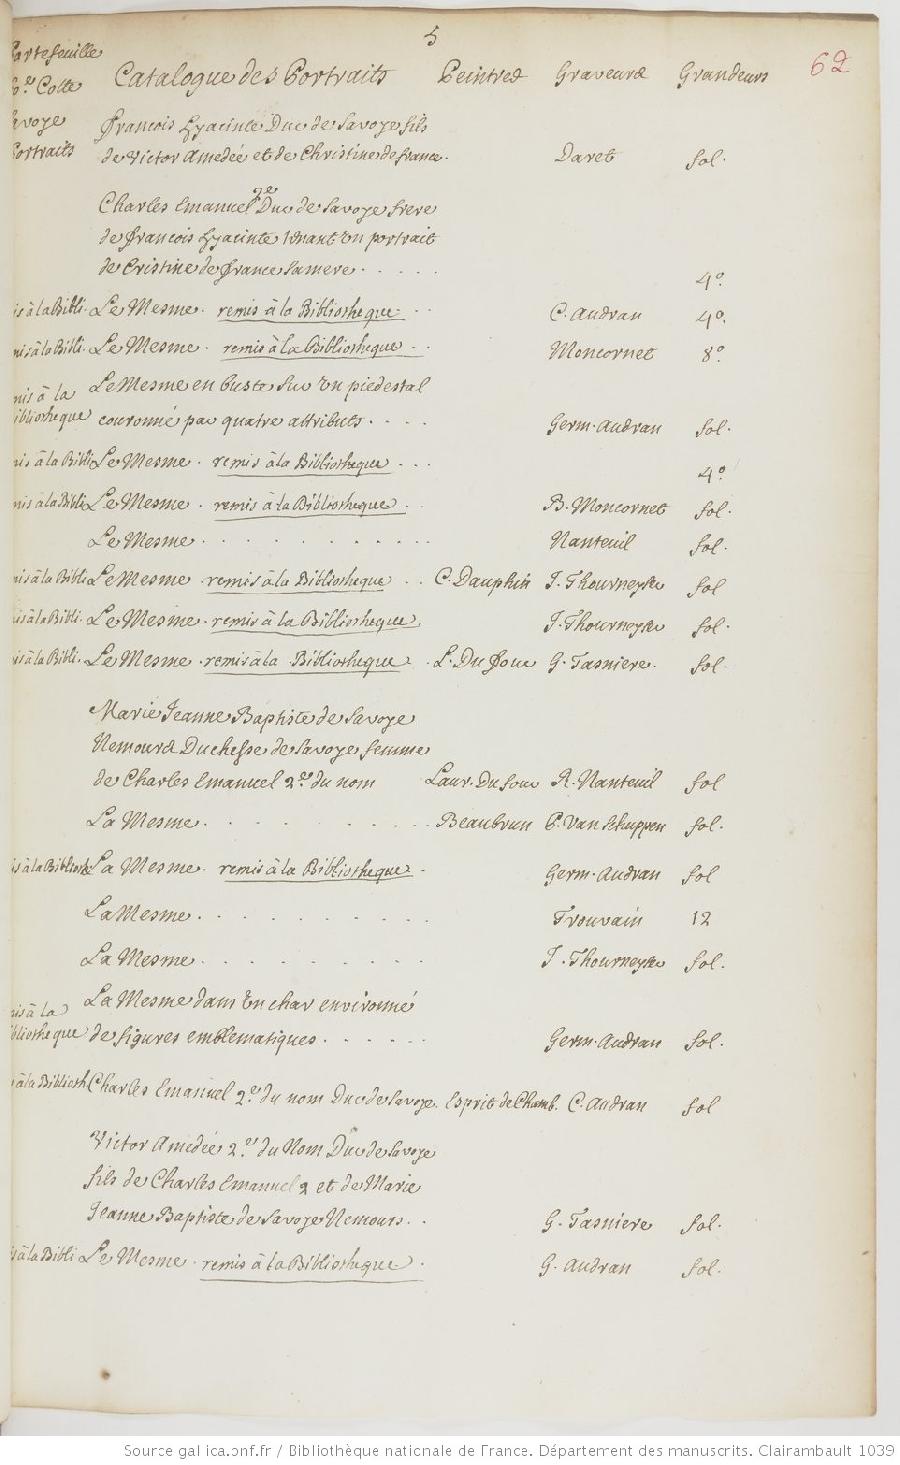 5
62
Portefeuille
Catalogue des Portraits Peintres Graveurs Grandeurs
Cotte
Savoye
Portraits
François Hyacinte Duc de Savoye fils
de Victor Amedée et de Christine de france. Daret fol.
Charles Emanuel 2e Duc de Savoye frere
de François Hyacinte tenant un portrait
de Cristine de france sa mere . . . . . 4o.
is à la Bibli. Le Mesme. remis à la Bibliotheque . . C. Audran 4o.
mis à la Bibli. Le Mesme. remis à la Bibliotheque . . Moncornet 8o
mis à la Bibliotheque
Le Mesme en buste sur un piedestal
couronné par quatre attributs . . . . Germ. Audran fol.
mis à la Bibli Le Mesme . remis à la Bibliotheque . . . 4o
mis à la Bibli Le Mesme . remis à la Bibliotheque . . B. Moncornet fol.
Le Mesme . . . . . . . . . . . Nanteuil fol.
mis à la Bibli Le Mesme . remis à la Bibliotheque . . C. Dauphin J. Thourneyse fol
is à la Bibli. Le Mesme . remis à la Bibliotheque J. Thourneyse fol.
is à la Bibli. Le Mesme . remis à la Bibliotheque . L. Du four G. Tasniere. fol
Marie Jeanne Baptiste de Savoye
Nemours Duchesse de Savoye femme
de Charles Emanuel 2e. du nom Laur. Du four R. Nanteuil fol
La Mesme . . . . . . . . . . Beaubrun P. Van Schuppen fol.
is à la Biblioth La Mesme . remis à la Bibliotheque . Germ. Audran fol
La Mesme . . . . . . . . . Trouvain 12
La Mesme . . . . . . . . . J. Thourneyse fol.
mis à la
bliotheque
La Mesme dans un char environné
de figures emblematiques . . . . . . Germ. Audran fol.
s à la Biblioth Charles Emanuel 2e. du nom Duc de Savoye. Esprit de Chamb. C. Audran fol
Victor Amedée 2e. du Nom Duc de Savoye
fils de Charles Emanuel 2 et de Marie
Jeanne Baptiste de Savoye Nemours . . G. Tasniere fol.
is à la Bibli Le Mesme . remis à la Bibliotheque . G. Audran fol.
Source gallica.bnf.fr / Bibliothèque nationale de France. Département des manuscrits. Clairambault 1039